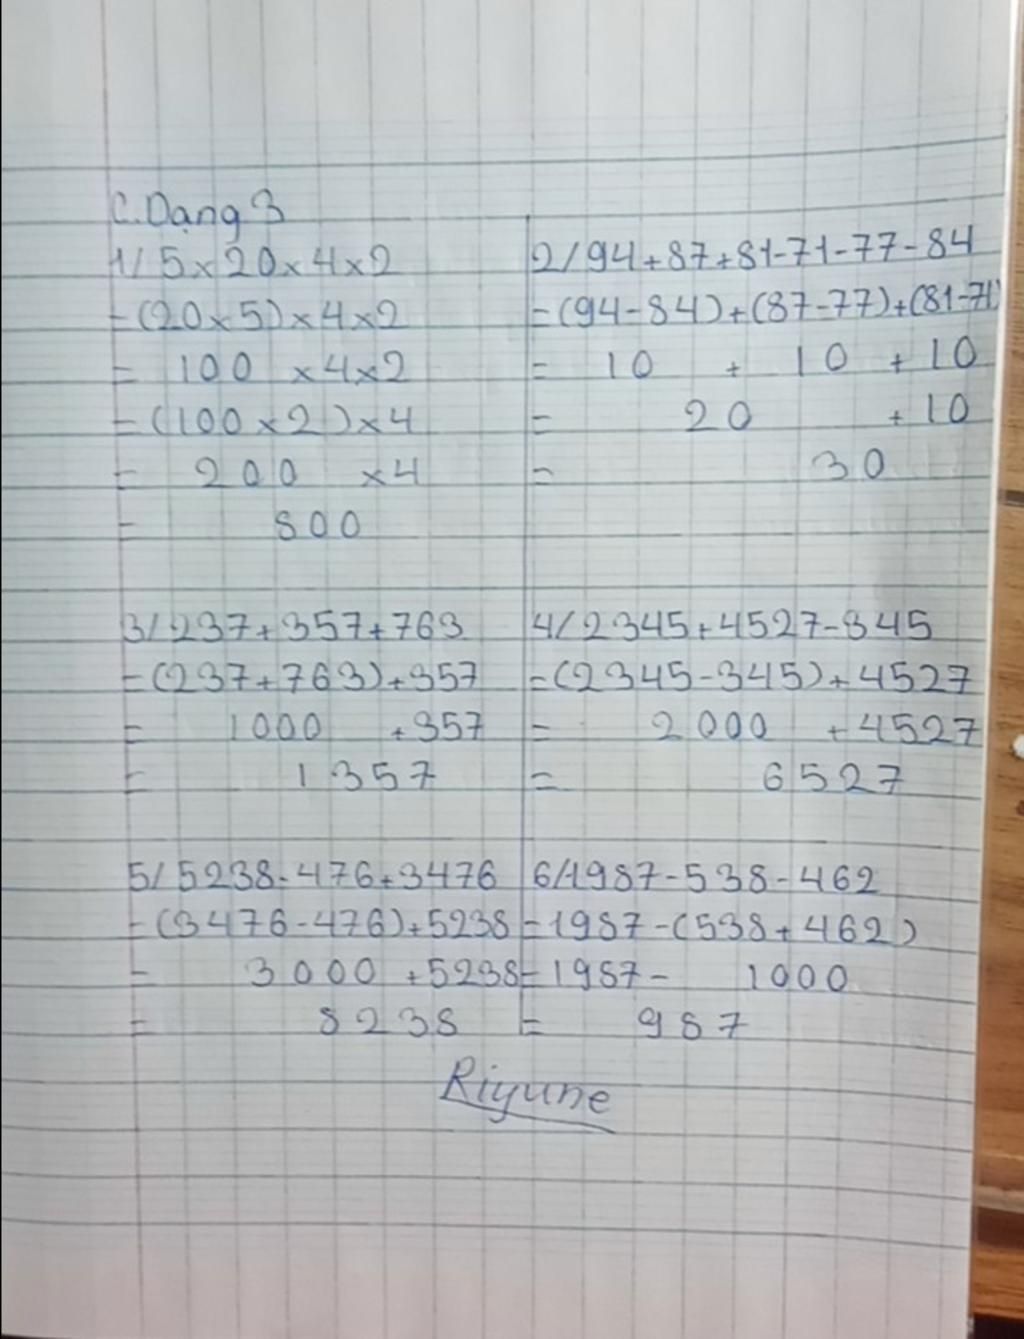 C. Dạng 3
1/ 5 x 20 x 4 x 2
= (20 x 5) x 4 x 2
= 100 x 4 x 2
= (100 x 2) x 4
= 200 x 4
= 800
2/ 94 + 87 + 81 - 71 - 77 - 84
= (94 - 84) + (87 - 77) + (81 - 71)
= 10 + 10 + 10
= 20 + 10
= 30
3/ 237 + 357 + 763
= (237 + 763) + 357
= 1000 + 357
= 1357
4/ 2345 + 4527 - 345
= (2345 - 345) + 4527
= 2000 + 4527
= 6527
5/ 5238 - 476 + 3476
= (3476 - 476) + 5238
= 3000 + 5238
= 8238
6/ 1987 - 538 - 462
= 1987 - (538 + 462)
= 1987 - 1000
= 987
Riyune